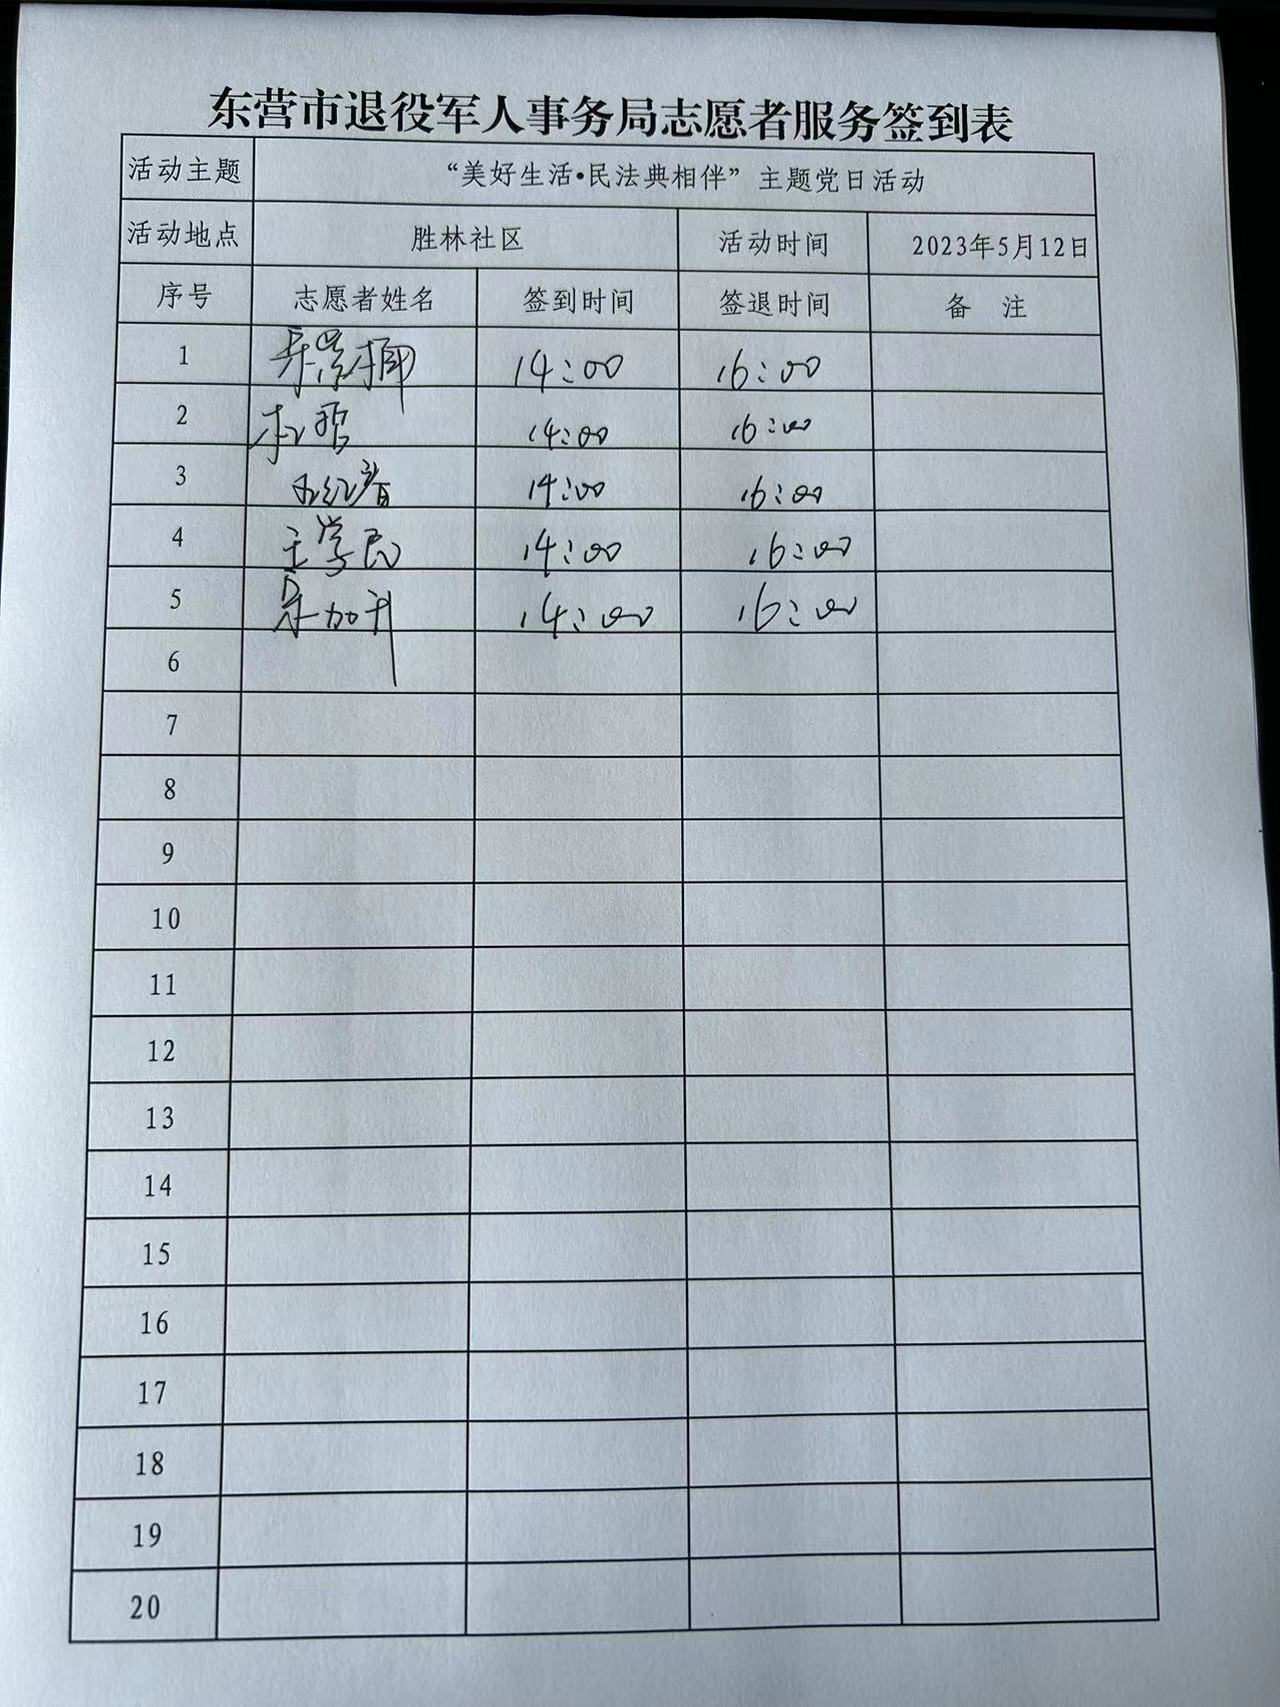 东营市退役军人事务局志愿者服务签到表
活动主题 “美好生活•民法典相伴”主题党日活动
活动地点 胜林社区 活动时间 2023年5月12日
序号 志愿者姓名 签到时间 签退时间 备 注
1 14:00 16:00
2 14:00 16:00
3 14:00 16:00
4 王学民 14:00 16:00
5 14:00 16:00
6
7
8
9
10
11
12
13
14
15
16
17
18
19
20